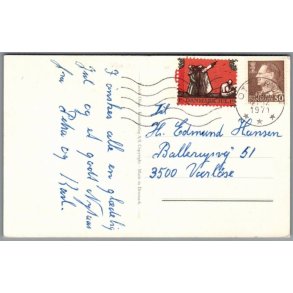 I ønskes alle en glædelig
Jul og et godt Nytaar
fra Petra og
Karl.
Til
Hr. Edmund Hansen
Ballerupvej 51
3500 Værløse
DANMARK JUL
1971
50
Made in Denmark